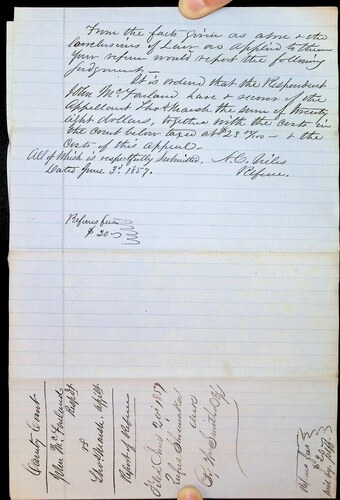 From the facts given as above & the
conclusions of Law as applied to them
Your referee would report the following
Judgment —
It is ordered that the Respondent
John McFarland have & recover of the
Appellant Geo Marsh the sum of twenty
eight dollars, together with the costs in
the Court below taxed at $2 & the
Costs of this Appeal —
All of Which is respectfully Submitted.
A. C. Giles
Referee.
Dated June 3d, 1857.
Referees fees
$20
County Court
John McFarland
Respdt
vs
Geo Marsh. applt
Report of Referee
Filed June 20th 1857
$20